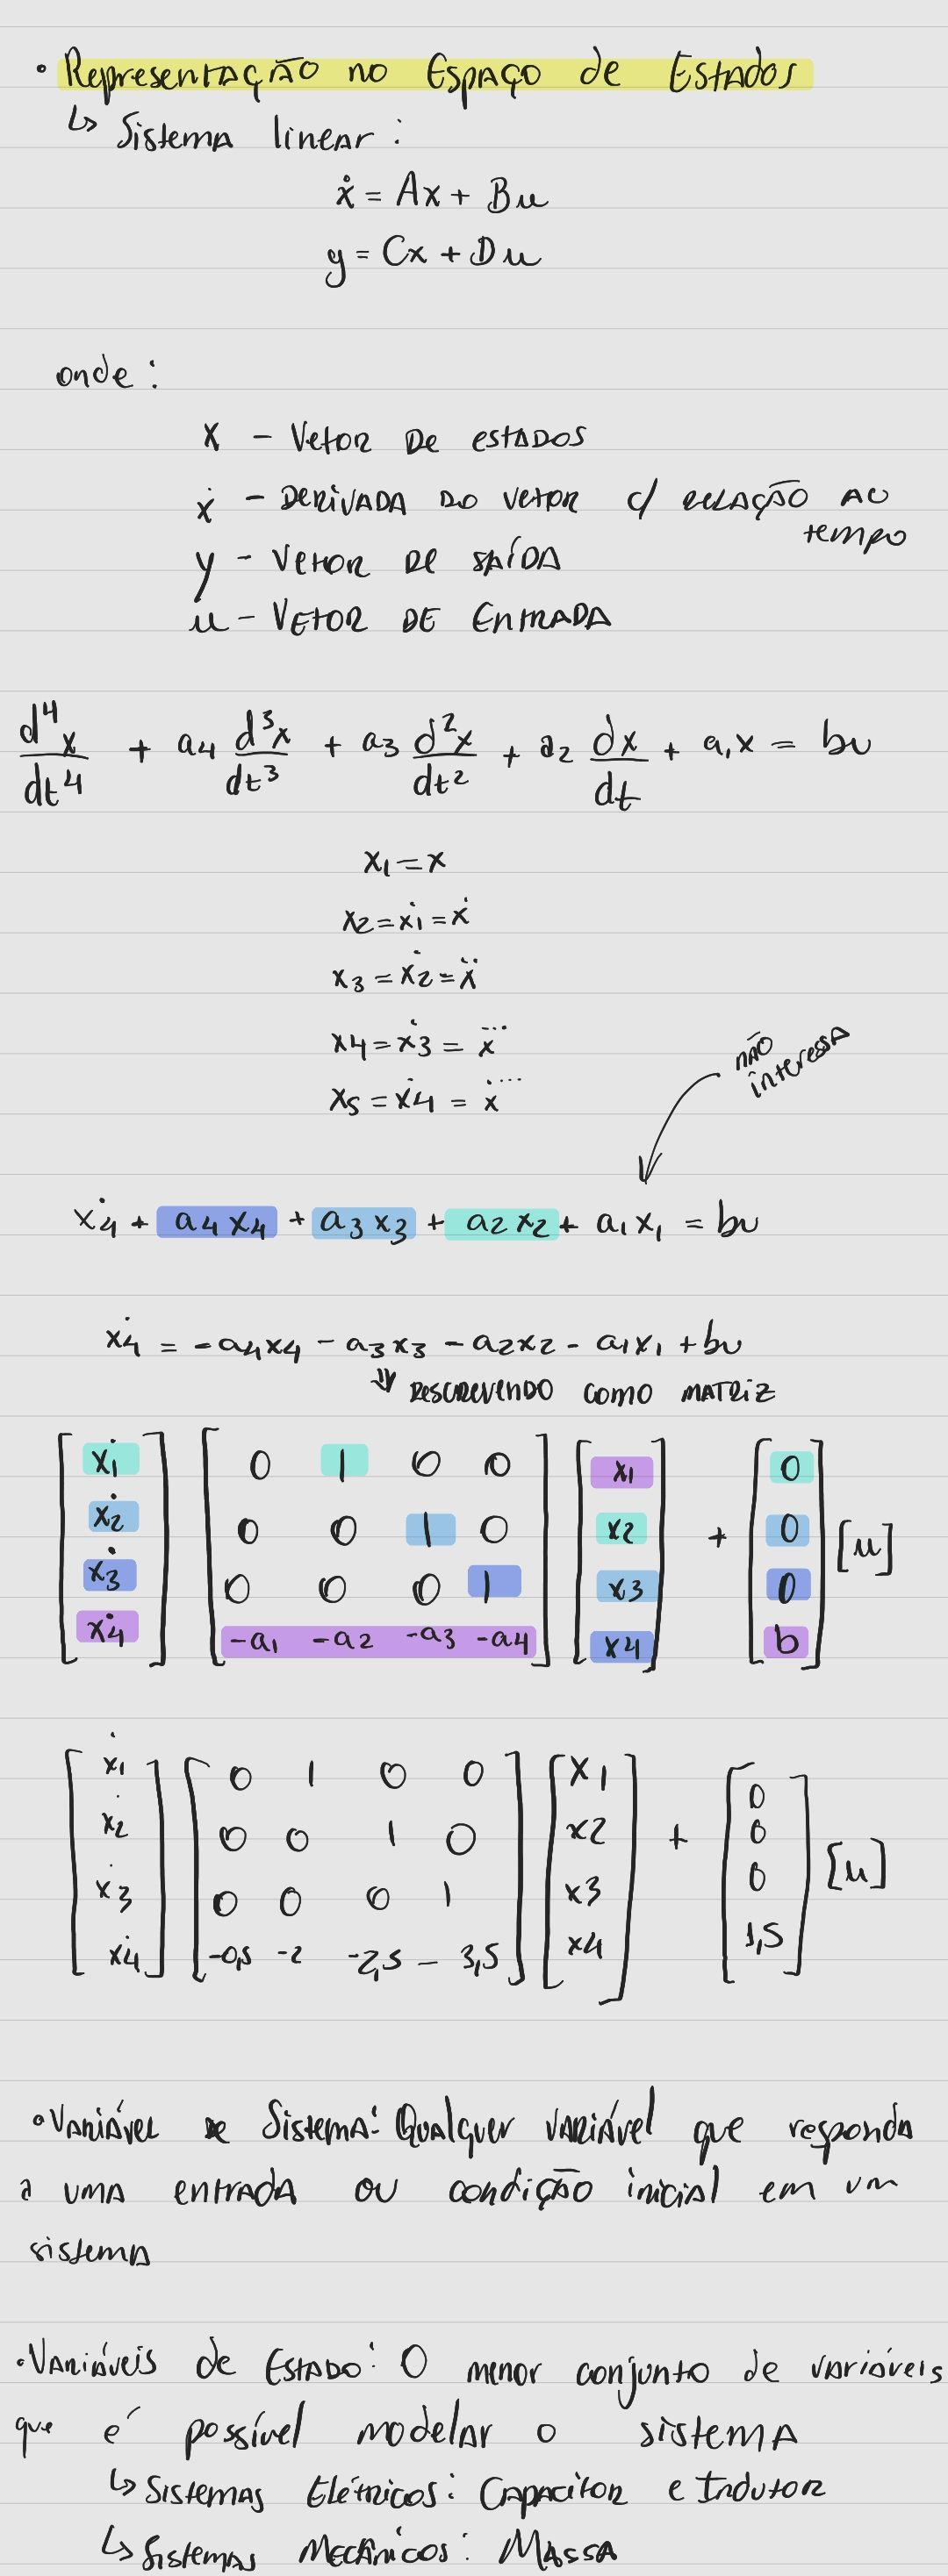 • Representação no Espaço de Estados
↳ Sistema linear:
ẋ = Ax + Bu
y = Cx + Du
onde:
x - Vetor de estados
ẋ - Derivada do vetor c/ relação ao
tempo
y - Vetor de saída
u - Vetor de Entrada
d⁴x/dt⁴ + a4 d³x/dt³ + a3 d²x/dt² + a2 dx/dt + a1x = bu
x1 = x
x2 = ẋ1 = ẋ
x3 = ẋ2 = ẍ
x4 = ẋ3 = x⃛
x5 = ẋ4 = x⃜
não
interessa
ẋ4 + a4x4 + a3x3 + a2x2 + a1x1 = bu
ẋ4 = -a4x4 - a3x3 - a2x2 - a1x1 + bu
⇓ rescrevendo como matriz
[ẋ1] [0 1 0 0] [x1] [0]
[ẋ2] [0 0 1 0] [x2] + [0] [u]
[ẋ3] [0 0 0 1] [x3] [0]
[ẋ4] [-a1 -a2 -a3 -a4] [x4] [b]
[ẋ1] [0 1 0 0] [x1] [0]
[ẋ2] [0 0 1 0] [x2] + [0]
[ẋ3] [0 0 0 1] [x3] [0] [u]
[ẋ4] [-0,5 -2 -2,5 - 3,5] [x4] [1,5]
• Variável de Sistema: Qualquer variável que responda
a uma entrada ou condição inicial em um
sistema
• Variáveis de Estado: O menor conjunto de variáveis
que é possível modelar o sistema
↳ Sistemas Elétricos: Capacitor e Indutor
↳ Sistemas Mecânicos: Massa